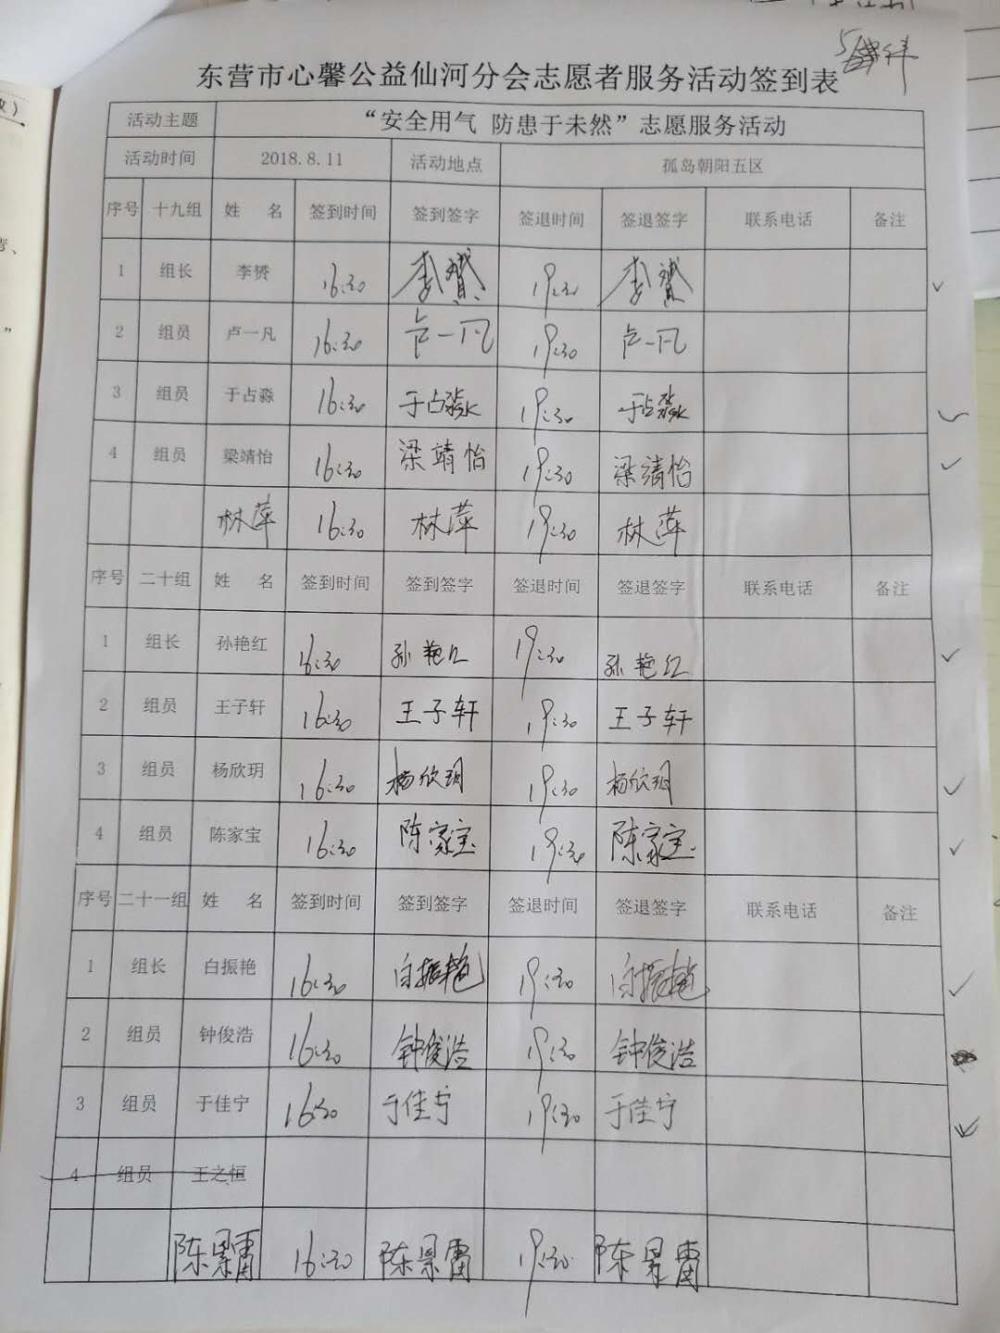 东营市心馨公益仙河分会志愿者服务活动签到表
活动主题 “安全用气 防患于未然”志愿服务活动
活动时间 2018.8.11 活动地点 孤岛朝阳五区
序号 十九组 姓 名 签到时间 签到签字 签退时间 签退签字 联系电话 备注
1 组长 李赟 16:30 李赟 19:30 李赟
2 组员 卢一凡 16:30 卢一凡 19:30 卢一凡
3 组员 于占淼 16:30 于占淼 19:30 于占淼
4 组员 梁靖怡 16:30 梁靖怡 19:30 梁靖怡
林萍 16:30 林萍 19:30 林萍
序号 二十组 姓 名 签到时间 签到签字 签退时间 签退签字 联系电话 备注
1 组长 孙艳红 16:30 孙艳红 19:30 孙艳红
2 组员 王子轩 16:30 王子轩 19:30 王子轩
3 组员 杨欣玥 16:30 杨欣玥 19:30 杨欣玥
4 组员 陈家宝 16:30 陈家宝 19:30 陈家宝
序号 二十一组 姓 名 签到时间 签到签字 签退时间 签退签字 联系电话 备注
1 组长 白振艳 16:30 白振艳 19:30 白振艳
2 组员 钟俊浩 16:30 钟俊浩 19:30 钟俊浩
3 组员 于佳宁 16:30 于佳宁 19:30 于佳宁
4 组员 王之恒
陈景雷 16:30 陈景雷 19:30 陈景雷